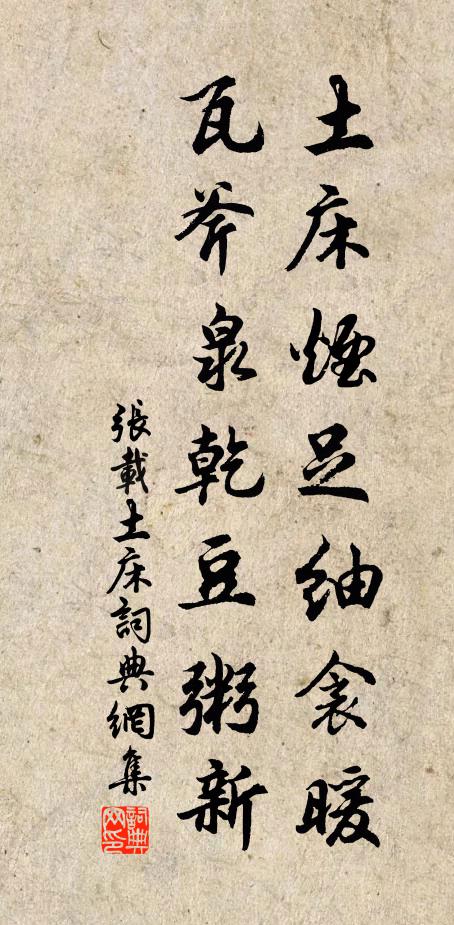 土床煙足紬衾暖
瓦斧泉乾豆粥新
張載土床詞典網集
詞典網印